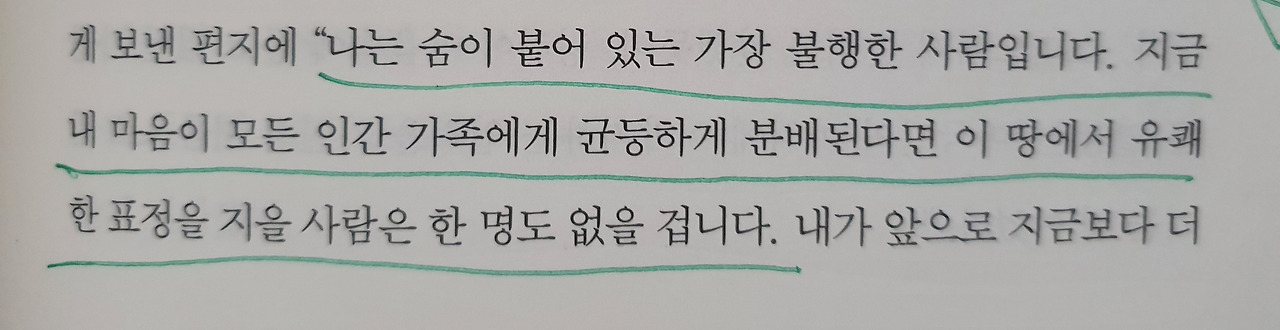 게 보낸 편지에 “나는 숨이 붙어 있는 가장 불행한 사람입니다. 지금
내 마음이 모든 인간 가족에게 균등하게 분배된다면 이 땅에서 유쾌
한 표정을 지을 사람은 한 명도 없을 겁니다. 내가 앞으로 지금보다 더